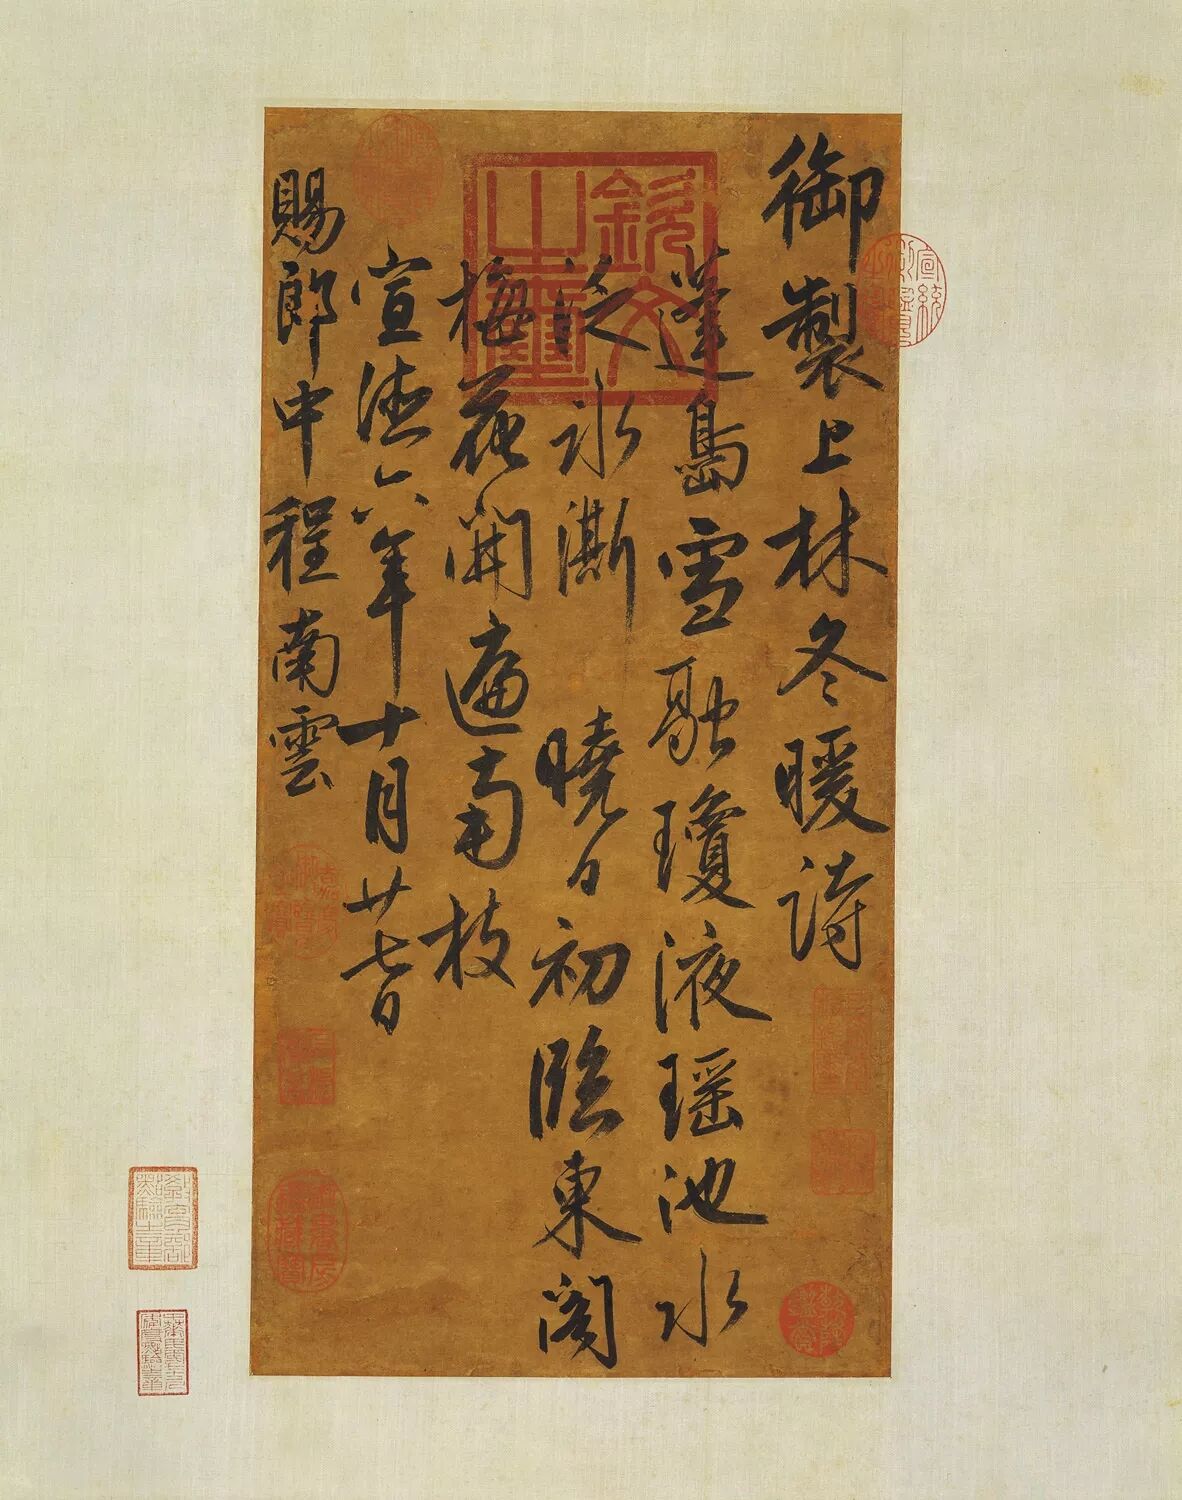 御製上林冬暖詩
蓬島雪融瓊液瑶池水
泛氷澌　曉日初臨東閣
梅花開遍南枝
宣德六年十月廿七日
賜郎中程南雲
欽文之璽